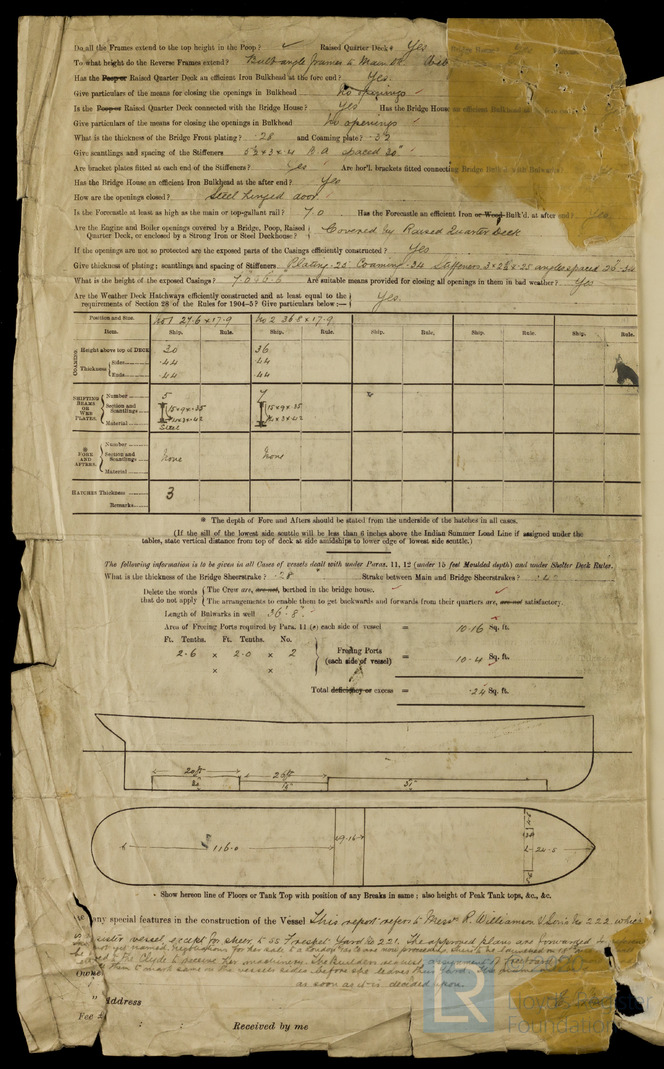 Do all the Frames extend to the top height in the Poop? ✓ Raised Quarter Deck? Yes Bridge House? Yes
To what height do the Reverse Frames extend? Bulb angle frames to Main Dk.
Has the Poop or Raised Quarter Deck an efficient Iron Bulkhead at the fore end? Yes.
Give particulars of the means for closing the openings in Bulkhead No openings
Is the Poop or Raised Quarter Deck connected with the Bridge House? Yes Has the Bridge House an efficient Bulkhead
Give particulars of the means for closing the openings in Bulkhead No openings
What is the thickness of the Bridge Front plating? .28 and Coaming plate? .32
Give scantlings and spacing of the Stiffeners B.A. spaced 30"
Are bracket plates fitted at each end of the Stiffeners? Yes Are hor'l. brackets fitted connecting Bridge with Bulwarks
Has the Bridge House an efficient Iron Bulkhead at the after end? Yes
How are the openings closed? Steel hinged door.
Is the Forecastle at least as high as the main or top-gallant rail? 7.0 Has the Forecastle an efficient Iron or Wood Bulk'd. at after end? Yes
Are the Engine and Boiler openings covered by a Bridge, Poop, Raised Quarter Deck, or enclosed by a Strong Iron or Steel Deckhouse? Covered by Raised Quarter Deck
If the openings are not so protected are the exposed parts of the Casings efficiently constructed? Yes
Give thickness of plating; scantlings and spacing of Stiffeners Plating .25 Coaming .34 Stiffeners 3 × 2½ × .25 angles spaced
What is the height of the exposed Casings? Are suitable means provided for closing all openings in them in bad weather? Yes
Are the Weather Deck Hatchways efficiently constructed and at least equal to the
requirements of Section 28 of the Rules for 1904-5? Give particulars below:— Yes.
Position and Size. No 1 27.6 × 17.9 No 2 36.8 × 17.9
Item. Ship. Rule. Ship. Rule. Ship. Rule. Ship. Rule. Ship. Rule.
COAMING Height above top of DECK 30 36
Thickness Sides .44 .44
Ends .44 .44
SHIFTING BEAMS OR WEB PLATES. Number 5 7
Section and Scantlings 15×9×.35 15×9×.35
3×.42 3×.42
Material Steel
※ FORE AND AFTERS. Number
Section and Scantlings None None
Material
HATCHES Thickness 3
Remarks
※ The depth of Fore and Afters should be stated from the underside of the hatches in all cases.
(If the sill of the lowest side scuttle will be less than 6 inches above the Indian Summer Load Line if assigned under the
tables, state vertical distance from top of deck at side amidships to lower edge of lowest side scuttle.)
The following information is to be given in all Cases of vessels dealt with under Paras. 11, 12 (under 15 feet Moulded depth) and under Shelter Deck Rules.
What is the thickness of the Bridge Sheerstrake? .28 Strake between Main and Bridge Sheerstrakes?
Delete the words that do not apply The Crew are, are not, berthed in the bridge house.
The arrangements to enable them to get backwards and forwards from their quarters are, are not satisfactory.
Length of Bulwarks in well 36'.8"
Area of Freeing Ports required by Para. 11 (e) each side of vessel = 10.16 Sq. ft.
Ft. Tenths. Ft. Tenths. No.
2.6 × 2.0 × 2 Freeing Ports (each side of vessel) = 10.4 Sq. ft.
× ×
Total deficiency or excess = .24 Sq. ft.
26ft
116.0 24.5
Show hereon line of Floors or Tank Top with position of any Breaks in same; also height of Peak Tank tops, &c., &c.
any special features in the construction of the Vessel This report refers to Messrs R. Williamson & Sons No 222 which
sister vessel except for sheer to SS Yard No 221. The approved plans are forwarded
not yet named, negotiations for her sale to a London firm are now
to the Clyde to receive her machinery. The Builders request assignment of freeboard
them to mark same on the vessels sides before she leaves their yard.
as soon as it is decided upon.
Owner
Address
Fee £ : :
Received by me
LR Lloyd's Register
Foundation